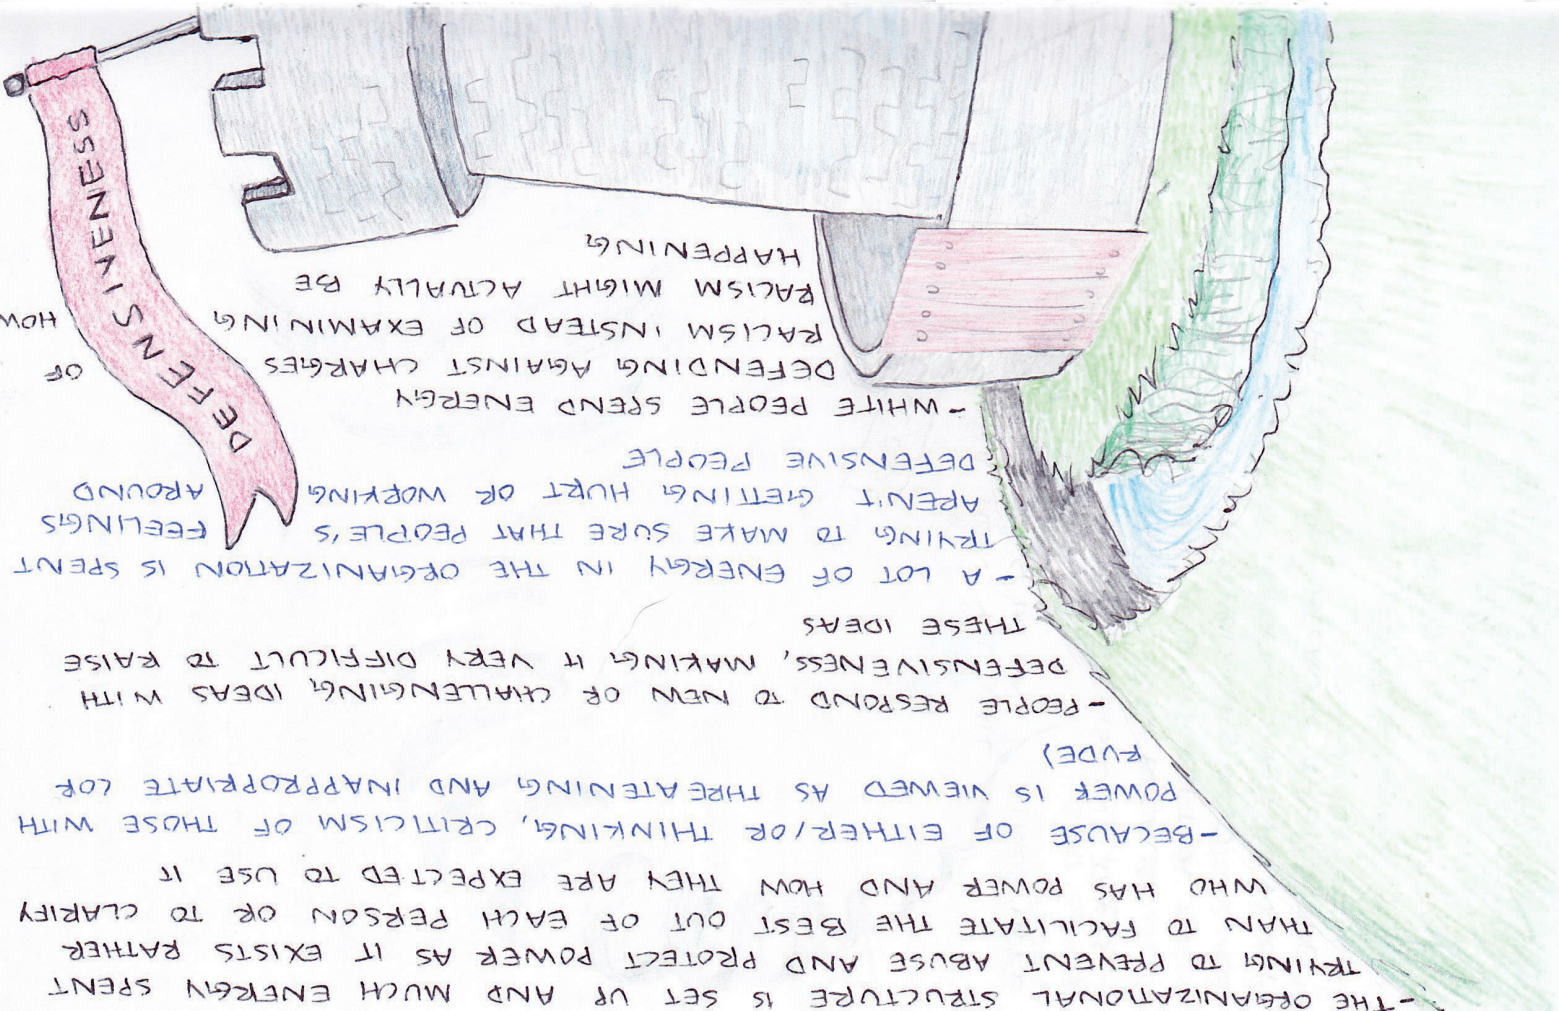 - THE ORGANIZATIONAL STRUCTURE IS SET UP AND MUCH ENERGY SPENT
TRYING TO PREVENT ABUSE AND PROTECT POWER AS IT EXISTS RATHER
THAN TO FACILITATE THE BEST OUT OF EACH PERSON OR TO CLARIFY
WHO HAS POWER AND HOW THEY ARE EXPECTED TO USE IT
- BECAUSE OF EITHER/OR THINKING, CRITICISM OF THOSE WITH
POWER IS VIEWED AS THREATENING AND INAPPROPRIATE (OR
RUDE)
- PEOPLE RESPOND TO NEW OR CHALLENGING IDEAS WITH
DEFENSIVENESS, MAKING IT VERY DIFFICULT TO RAISE
THESE IDEAS
- A LOT OF ENERGY IN THE ORGANIZATION IS SPENT
TRYING TO MAKE SURE THAT PEOPLE'S FEELINGS
AREN'T GETTING HURT OR WORKING AROUND
DEFENSIVE PEOPLE
- WHITE PEOPLE SPEND ENERGY
DEFENDING AGAINST CHARGES OF
RACISM INSTEAD OF EXAMINING HOW
RACISM MIGHT ACTUALLY BE
HAPPENING
DEFENSIVENESS